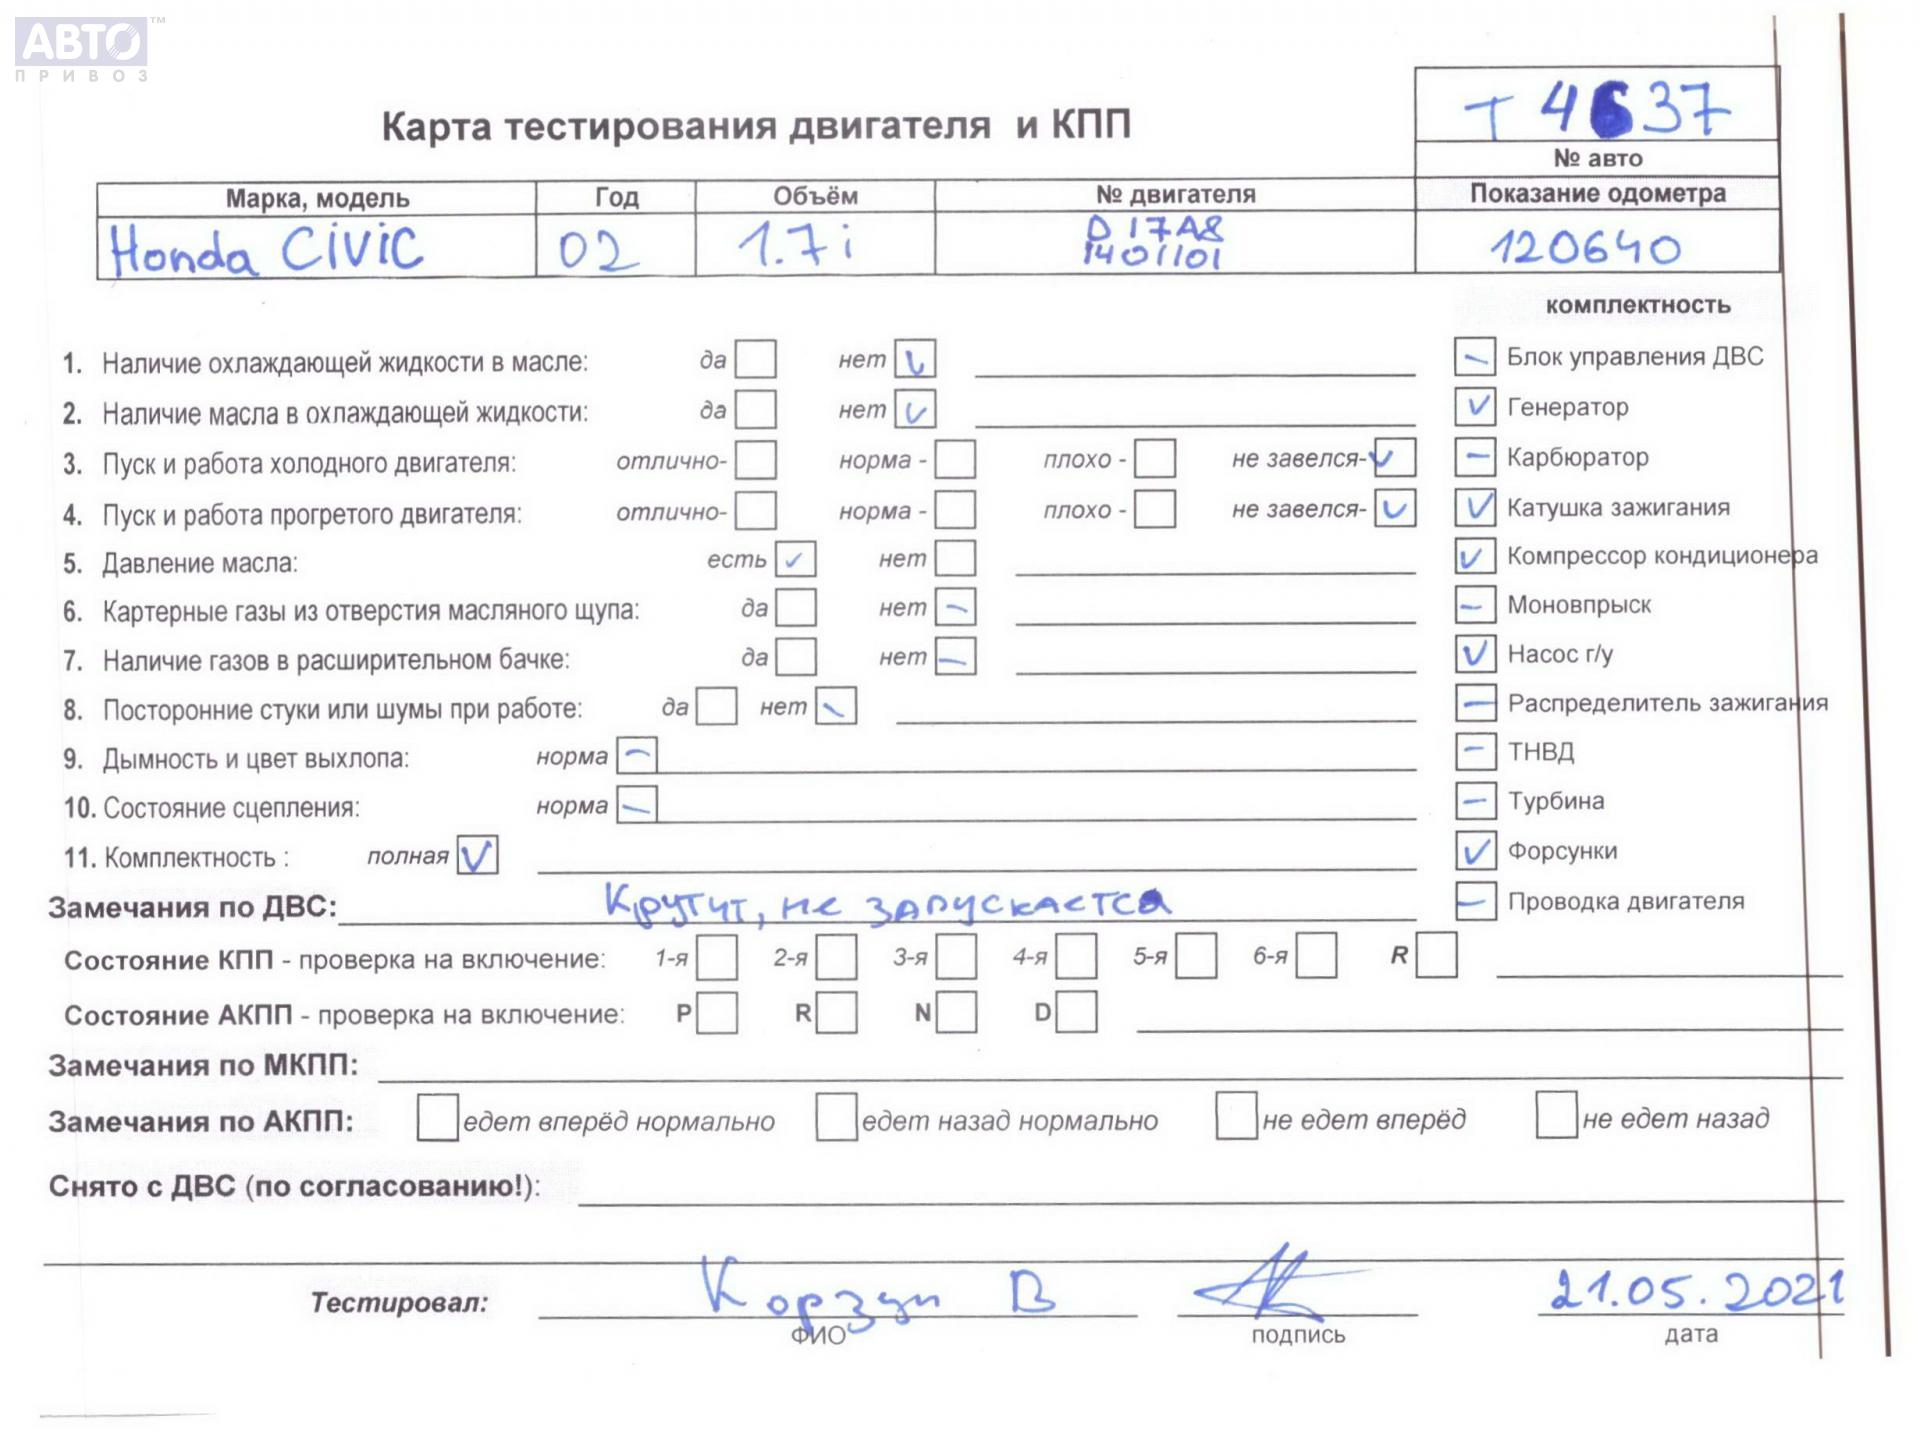 АВТО™
ПРИВОЗ
Т 4637
Карта тестирования двигателя и КПП
№ авто
Марка, модель Год Объём № двигателя Показание одометра
Honda CiViC 02 1.7i D17A8 1401101 120640
комплектность
1. Наличие охлаждающей жидкости в масле: да нет ✓
– Блок управления ДВС
2. Наличие масла в охлаждающей жидкости: да нет ✓
✓ Генератор
3. Пуск и работа холодного двигателя: отлично- норма - плохо - не завелся- ✓
– Карбюратор
4. Пуск и работа прогретого двигателя: отлично- норма - плохо - не завелся- ✓
✓ Катушка зажигания
5. Давление масла: есть ✓ нет
✓ Компрессор кондиционера
6. Картерные газы из отверстия масляного щупа: да нет –
– Моновпрыск
7. Наличие газов в расширительном бачке: да нет –
✓ Насос г/у
8. Посторонние стуки или шумы при работе: да нет –
– Распределитель зажигания
9. Дымность и цвет выхлопа: норма –
– ТНВД
10. Состояние сцепления: норма –
– Турбина
11. Комплектность : полная ✓
✓ Форсунки
Замечания по ДВС: Крутит, не запускается
– Проводка двигателя
Состояние КПП - проверка на включение: 1-я 2-я 3-я 4-я 5-я 6-я R
Состояние АКПП - проверка на включение: P R N D
Замечания по МКПП:
Замечания по АКПП: едет вперёд нормально едет назад нормально не едет вперёд не едет назад
Снято с ДВС (по согласованию!):
Тестировал: Корзун В 21.05.2021
ФИО подпись дата